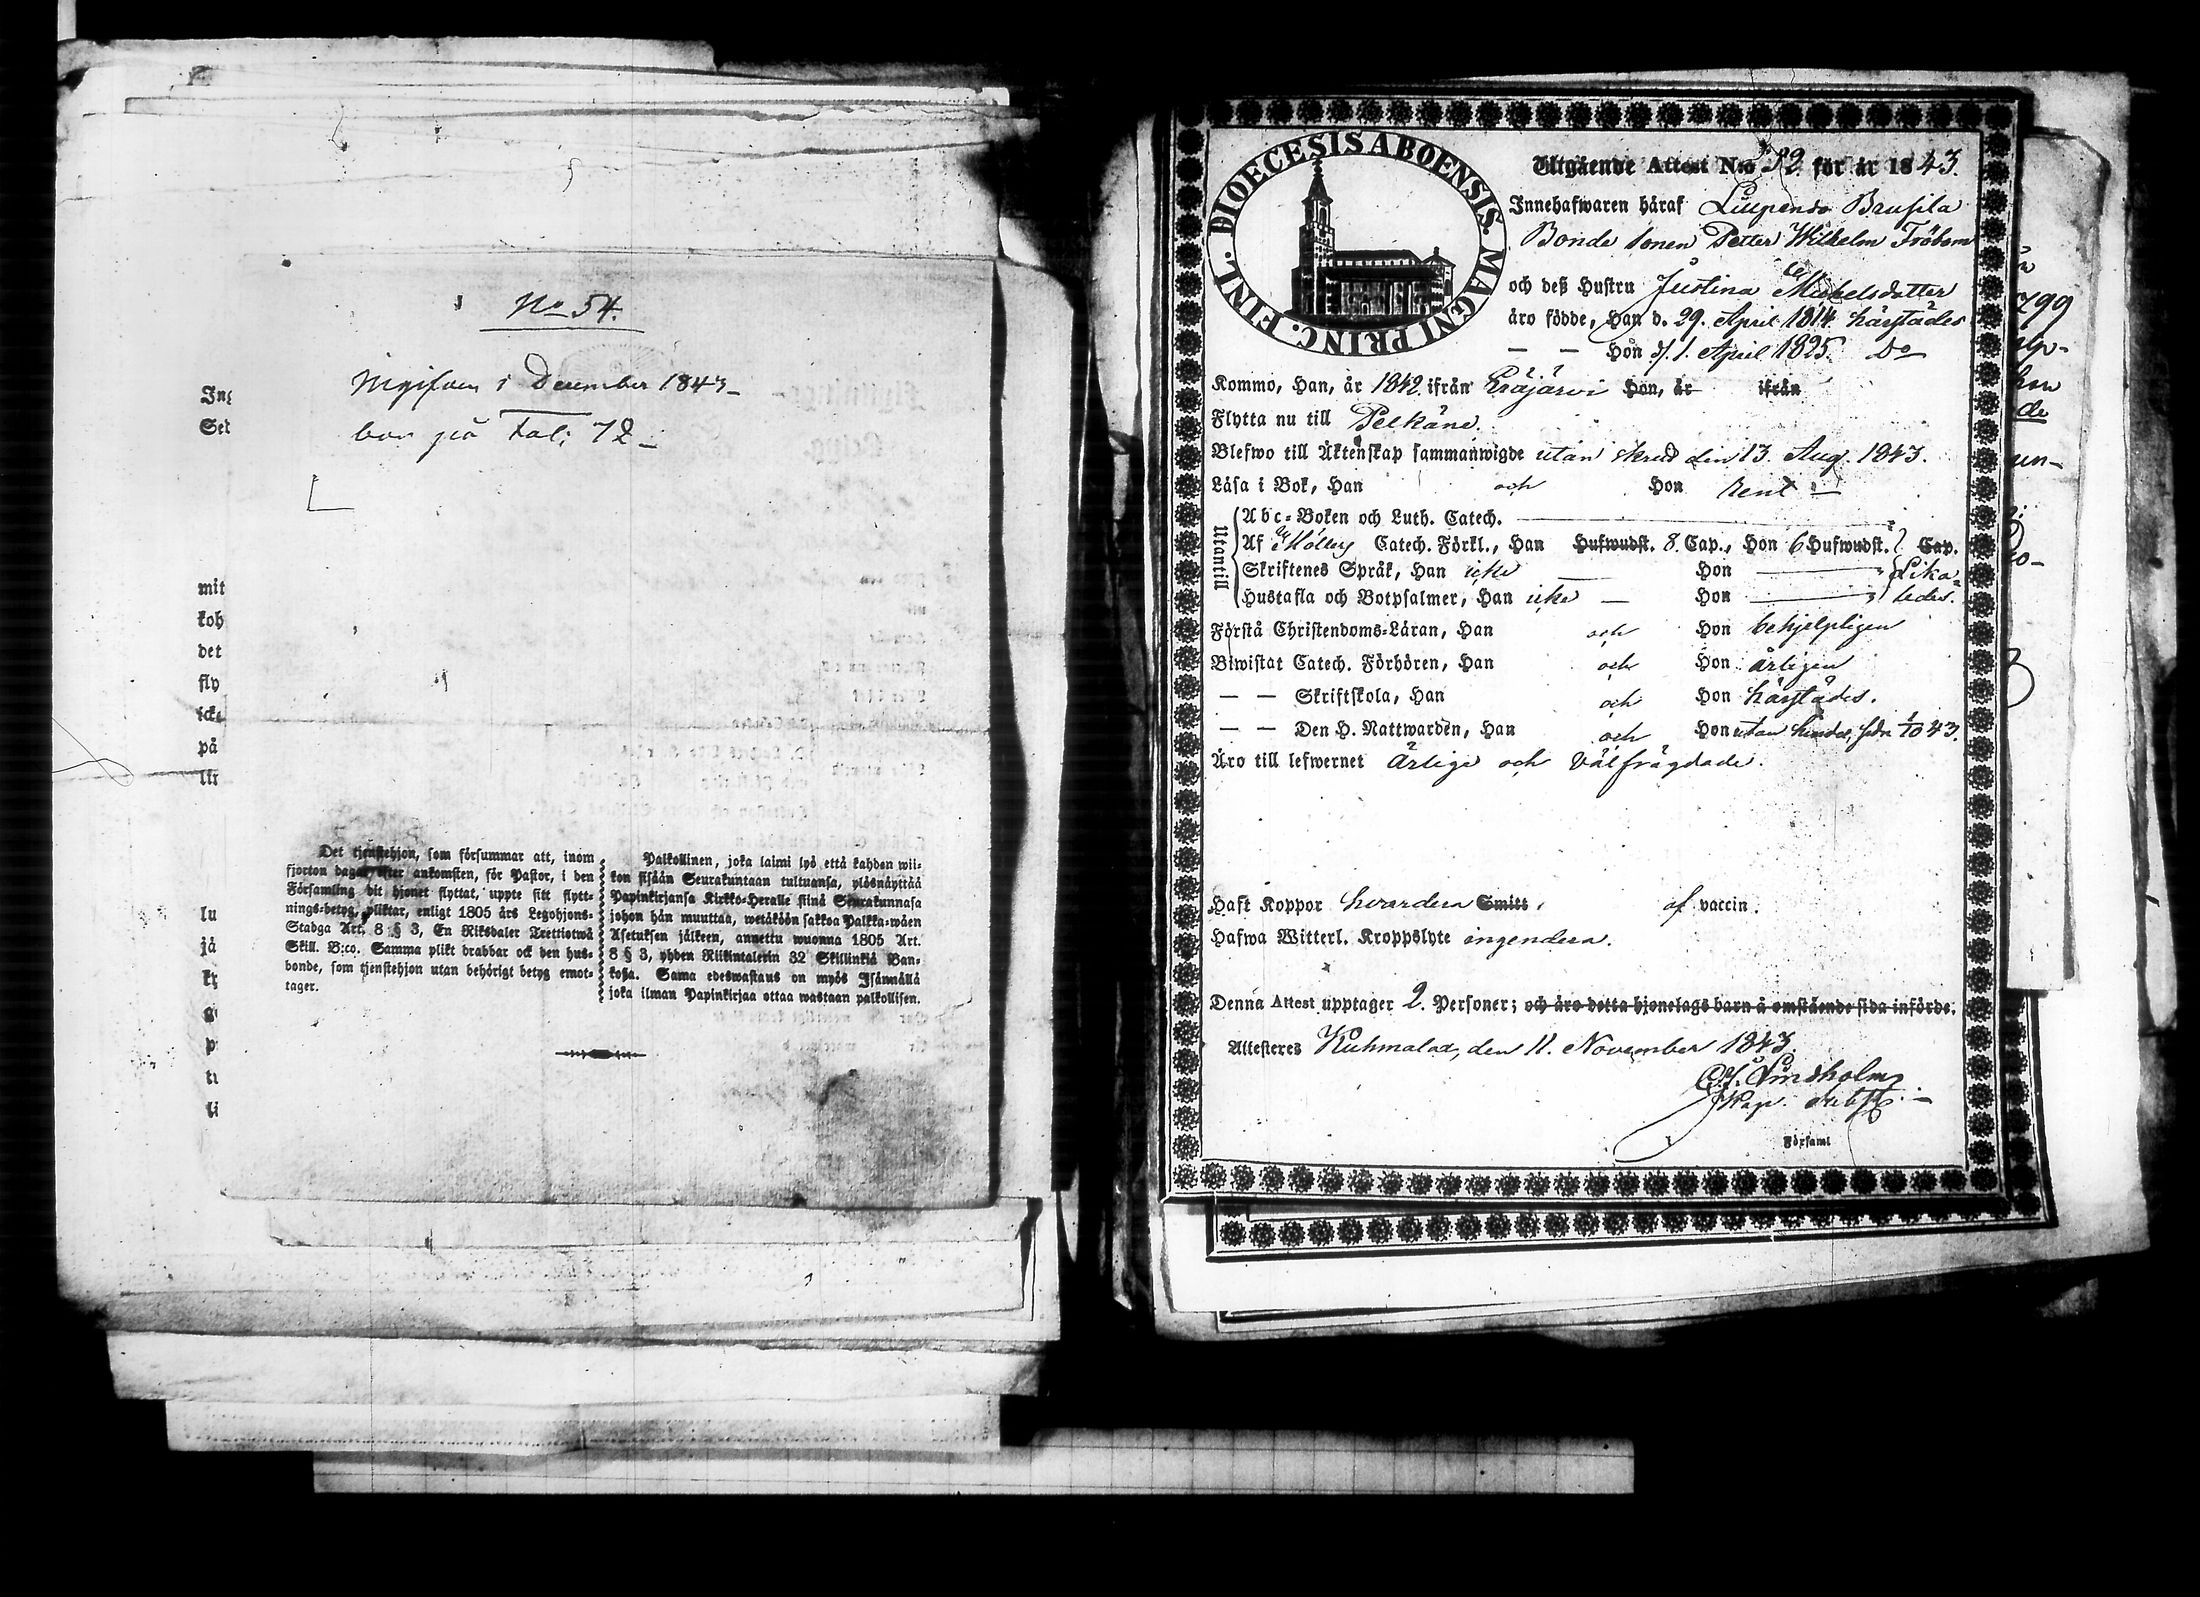 No 54.
Uppifven i December 1843
bor på Fol: 72
Ing
Set
mit
koh
det
fly
icke
på
lu
jä
Det tjenstehjon, som försummar att, inom
fjorton dagar efter ankomsten, för Pastor, i den
Församling dit hjonet flyttat, uppte sitt flytt-
nings-betyg, pliktar, enligt 1805 års Legohjons-
Stadga Art. 8 § 3, En Riksdaler Trettiotwå
Skill. B:co. Samma plikt drabbar ock den hus-
bonde, som tjenstehjon utan behörigt betyg emot-
tager.
Palkollinen, joka laimi lyö että kahden wii-
kon sisään Seurakuntaan tultuansa, ylösnäyttää
Papinkirjansa Kirkko-Heralle siinä Seurakunnasa
johon hän muuttaa, wetäköön sakkoa Palkka-wäen
Asetuksen jälkeen, annettu wuonna 1805 Art.
8 § 3, yhden Riikintalerin 32 Skillinkiä Ban-
kosa. Sama edeswastaus on myös Isännällä
joka ilman Papinkirjaa ottaa wastaan palkollisen.
DIOECESIS ABOENSIS. MAGNI PRINC. FINL.
Utgående Attest N:o 52 för år 1843.
Innehafwaren häraf Liupendo Brusila
Bonde sonen Petter Wilhelm Fröbom
och deß Hustru Justina Michelsdotter
äro födde, Han d. 29. April 1814. härstädes
— — Hon d. 1. April 1825. Do
Kommo, Han, år 1842 ifrån Eräjärvi Hon, år ifrån
Flytta nu till Pelkäne.
Blefwo till Äktenskap sammanwigde utan skrud den 13. Aug. 1843.
Läsa i Bok, Han och Hon rent —
Utantill
Abc-Boken och Luth. Catech.
Af Möllers Catech. Förkl., Han Hufwudst. 8. Cap., Hon 6 Hufwudst. Cap.
Skriftenes Språk, Han icke — Hon — Lika-
Hustafla och Botpsalmer, Han icke — Hon — ledes.
Förstå Christendoms-Läran, Han och Hon behjelpligen
Biwistat Catech. Förhören, Han och Hon årligen
— — Skriftskola, Han och Hon härstädes.
— — Den H. Nattwarden, Han och Hon utan hinder, sedn 1/10 43.
Äro till lefwernet Ärlige och Välfrägdade.
Haft Koppor hvardera Smitt, af vaccin.
Hafwa Witterl. Kroppslyte ingendera.
Denna Attest upptager 2. Personer; och äro detta hjonelags barn å omstående sida införde.
Attesteras Kuhmalax, den 11. November 1843.
C. J. Lindholm
Kap. Subst.
Församl